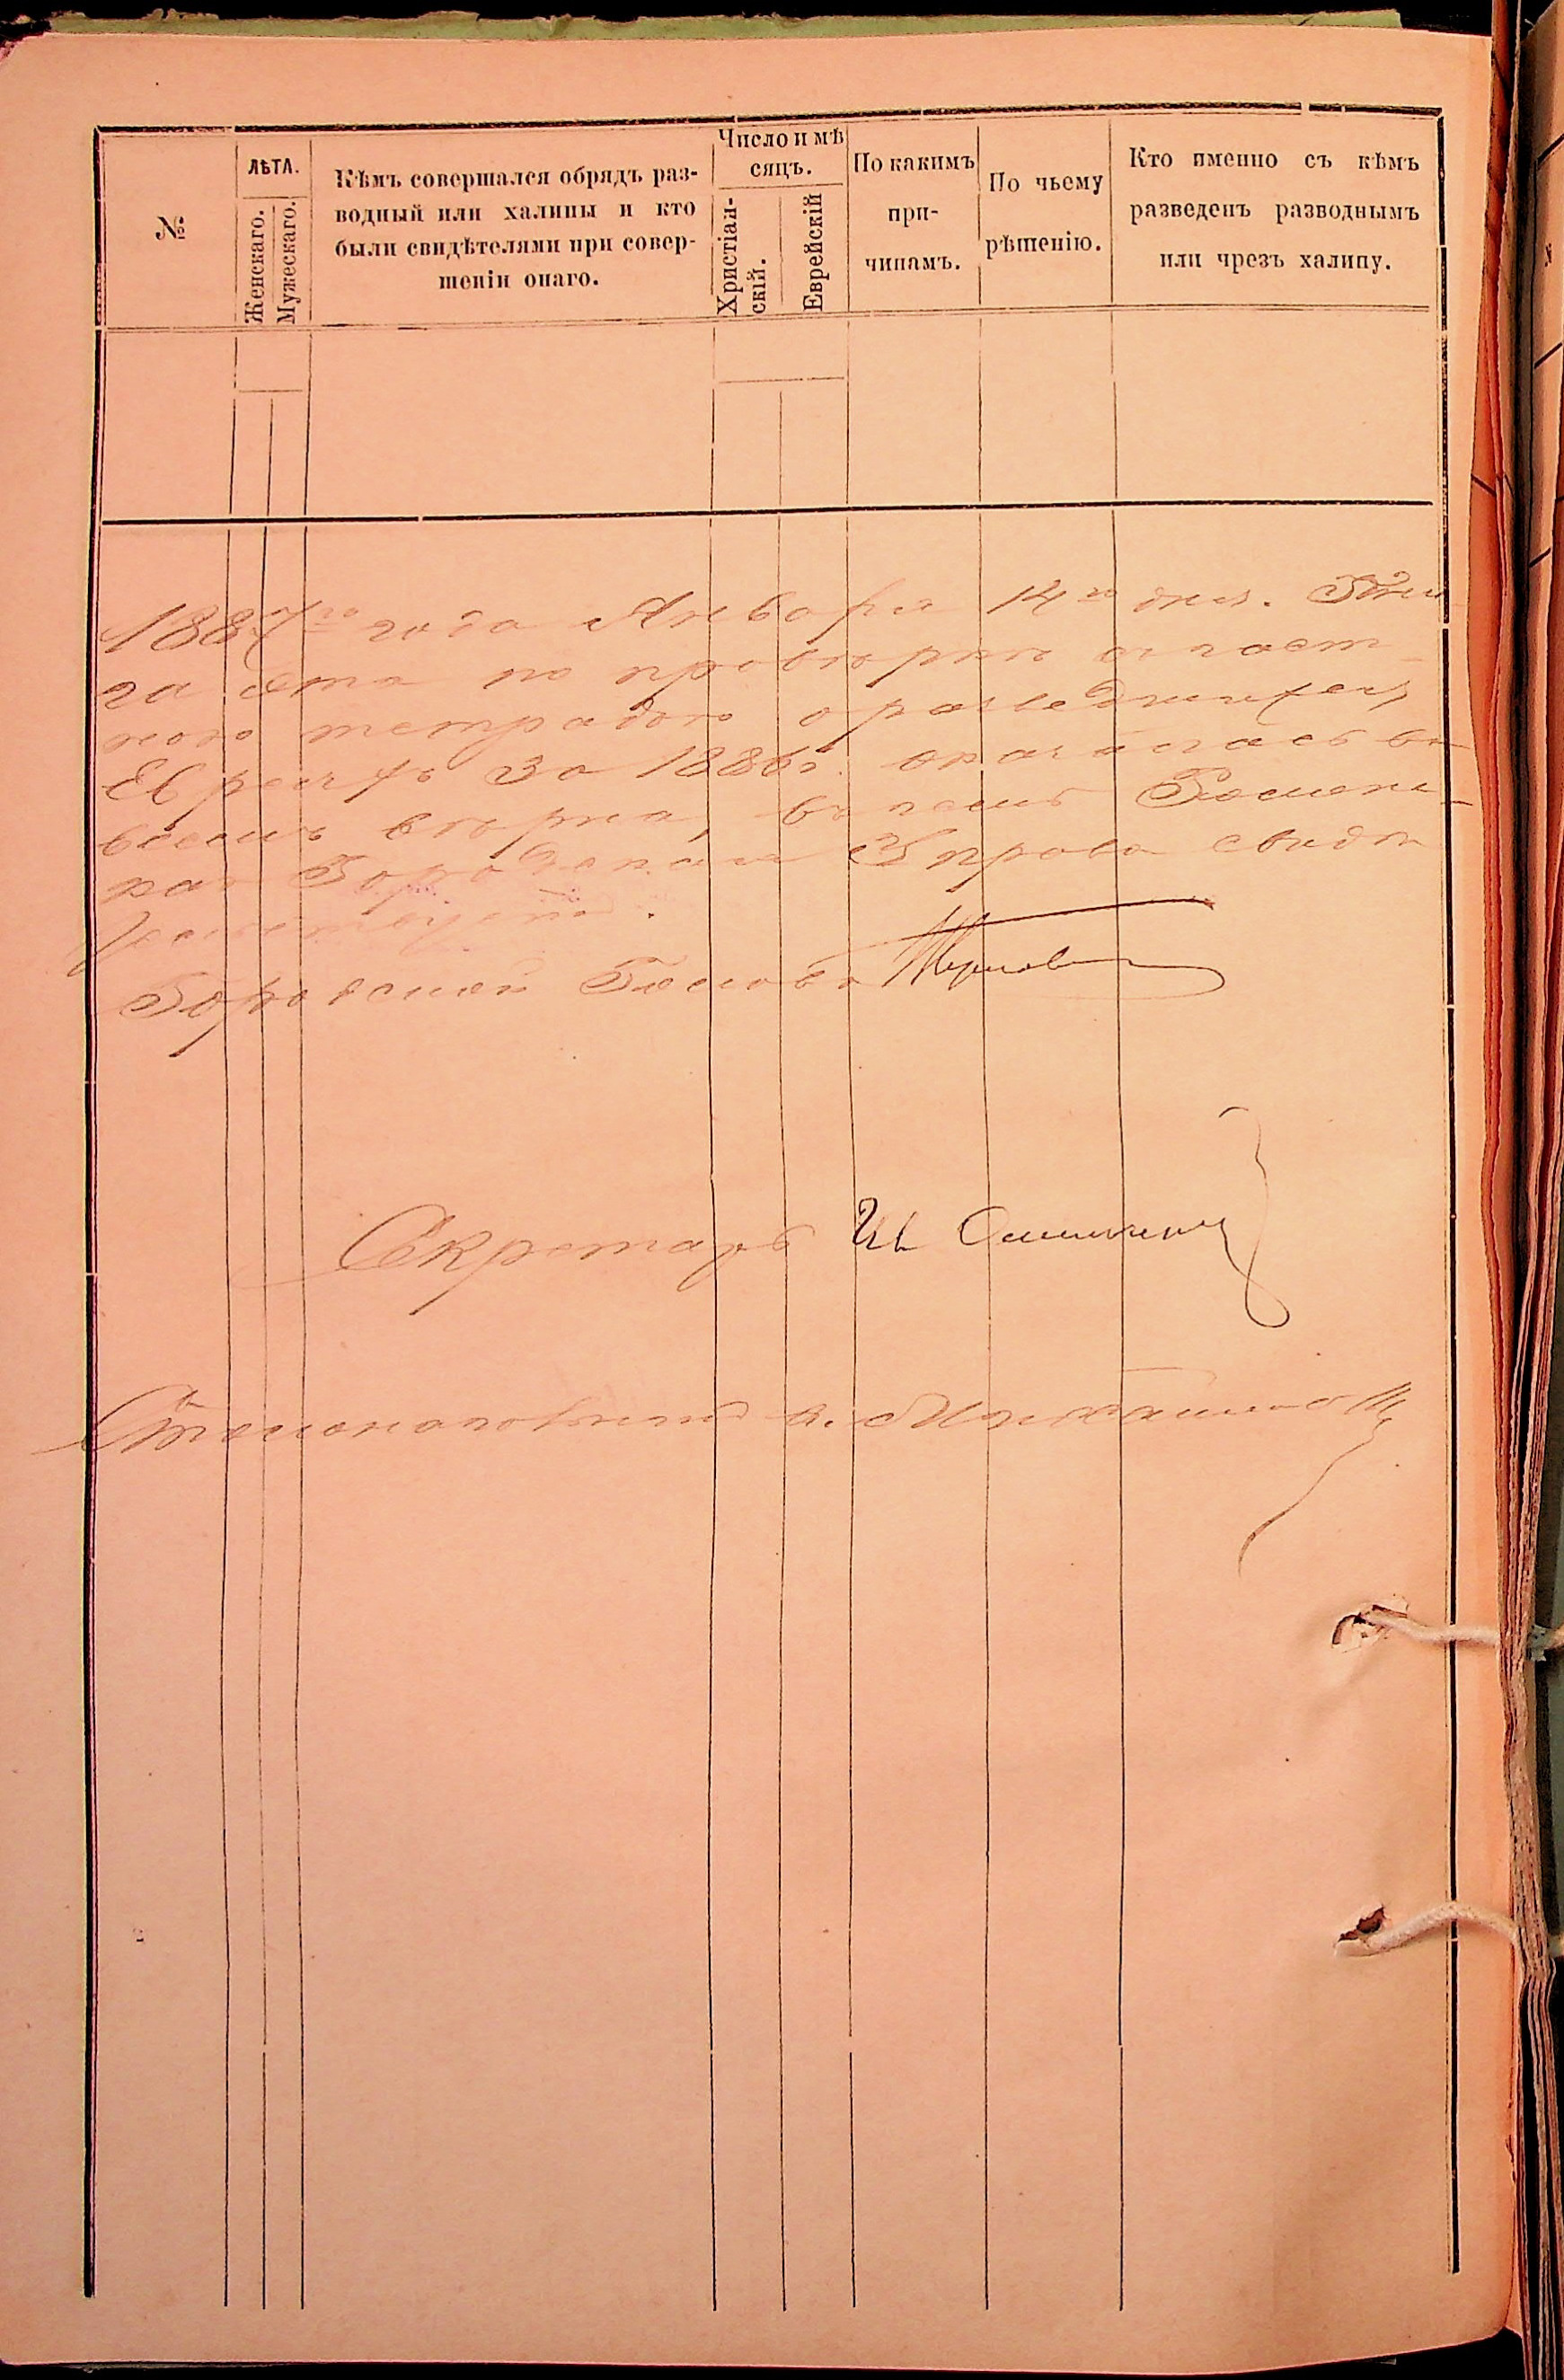 №
ЛѢТА.
Женскаго.
Мужескаго.
Кѣмъ совершался обрядъ раз-
водный или халицы и кто
были свидѣтелями при совер-
шеніи онаго.
Число и мѣ
сяцъ.
Христіан-
скій.
Еврейскій
По какимъ
при-
чинамъ.
По чьему
рѣшенію.
Кто именно съ кѣмъ
разведенъ разводнымъ
или чрезъ халицу.
1887го года Января 14го дня. Кни
га эта по провѣркѣ съ част
ною тетрадью о разведшихся
Евреяхъ за 1886 г. оказалась во
всемъ вѣрна, въ чемъ
кая Городская Управа свидѣ
тельствуетъ.
Городской Голова
Секретарь Ив